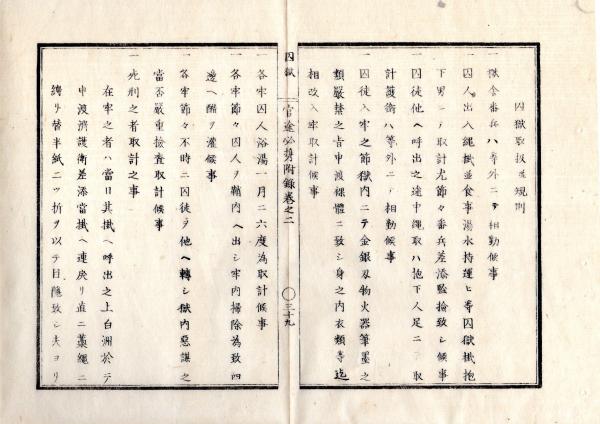 囚獄取扱並規則
一獄舎番兵ハ等外ニテ相勤候事
一囚人出入縄掛並食事湯水持運ヒ等囚獄掛抱
下男ニテ取計尤節々番兵差添監撿致シ候事
一囚徒他ヘ呼出之途中縄取ハ抱下人足ニテ取
計護衛ハ等外ニテ相勤候事
一囚徒入牢之節獄内ニテ金銀刃物火器筆墨之
類嚴禁之旨申渡裸體ニ致シ身之内衣類等迄
相改入牢取計候事
囚獄
官途必携附録巻之二
〇三十九
一各牢囚人浴湯一月ニ六度為取計候事
一各牢節々囚人ヲ鞘内ヘ出シ牢内掃除為致四
邊ヘ醋ヲ灌候事
一各牢節々不時ニ囚徒ヲ他ヘ轉シ獄内惡謀之
當否嚴重撿査取計候事
一死刑之者取計之事
在牢之者ハ當日其掛ヘ呼出之上白洲於テ
申渡濟護衛差添當掛ヘ連戻リ直ニ藁縄ニ
縳リ替半紙二ツ折ヲ以テ目隠致シ夫ヨリ